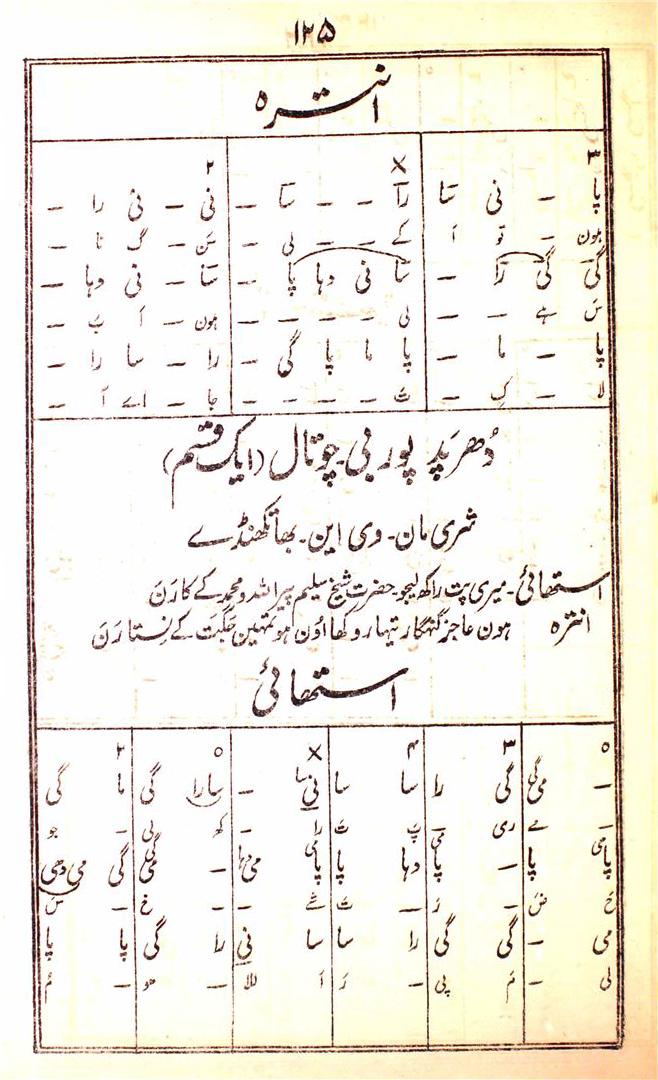 ۱۲۵
انترہ
۳ × ۲
پا - نی سا را - - سا - نی - نی را -
ہون - تو ا کے - - لی - سن - گ نا -
گی گی را - سا نی دہا پا - سا - نی دہا -
س ہے - - لی - - - - ہون - ا ب -
پا - ما - پا ما پا گی - را - سا را -
لا - ک - ث - - - - جا - اے آ -
دُھرپد پوربی۔ چوتال (ایک قسم)
شری مان۔ وی این۔ بھاتکھنڈے
استھائی۔ میری پت راکھ لیجو۔ حضرت شیخ سلیم پیر اللہ و محمد کے کارَن
انترہ ہون عاجز گنہگار تیہارو کھا اوُن ہو تمہین جگت کے نِستارَن
استھائی
۵ ۳ ۴ × ۵ ۲
- می گی را سا سا نی - سارا گی ما گی
- ے ری - پ ت را - کھ لی - جو
پا پا - پا دہا پا پا می - می گی می دھی
ح ض - ر - ت - - خ - س
می - گی گی را سا سا نی را گی پا پا
لی - م پی - ر ا للا - ھو - م